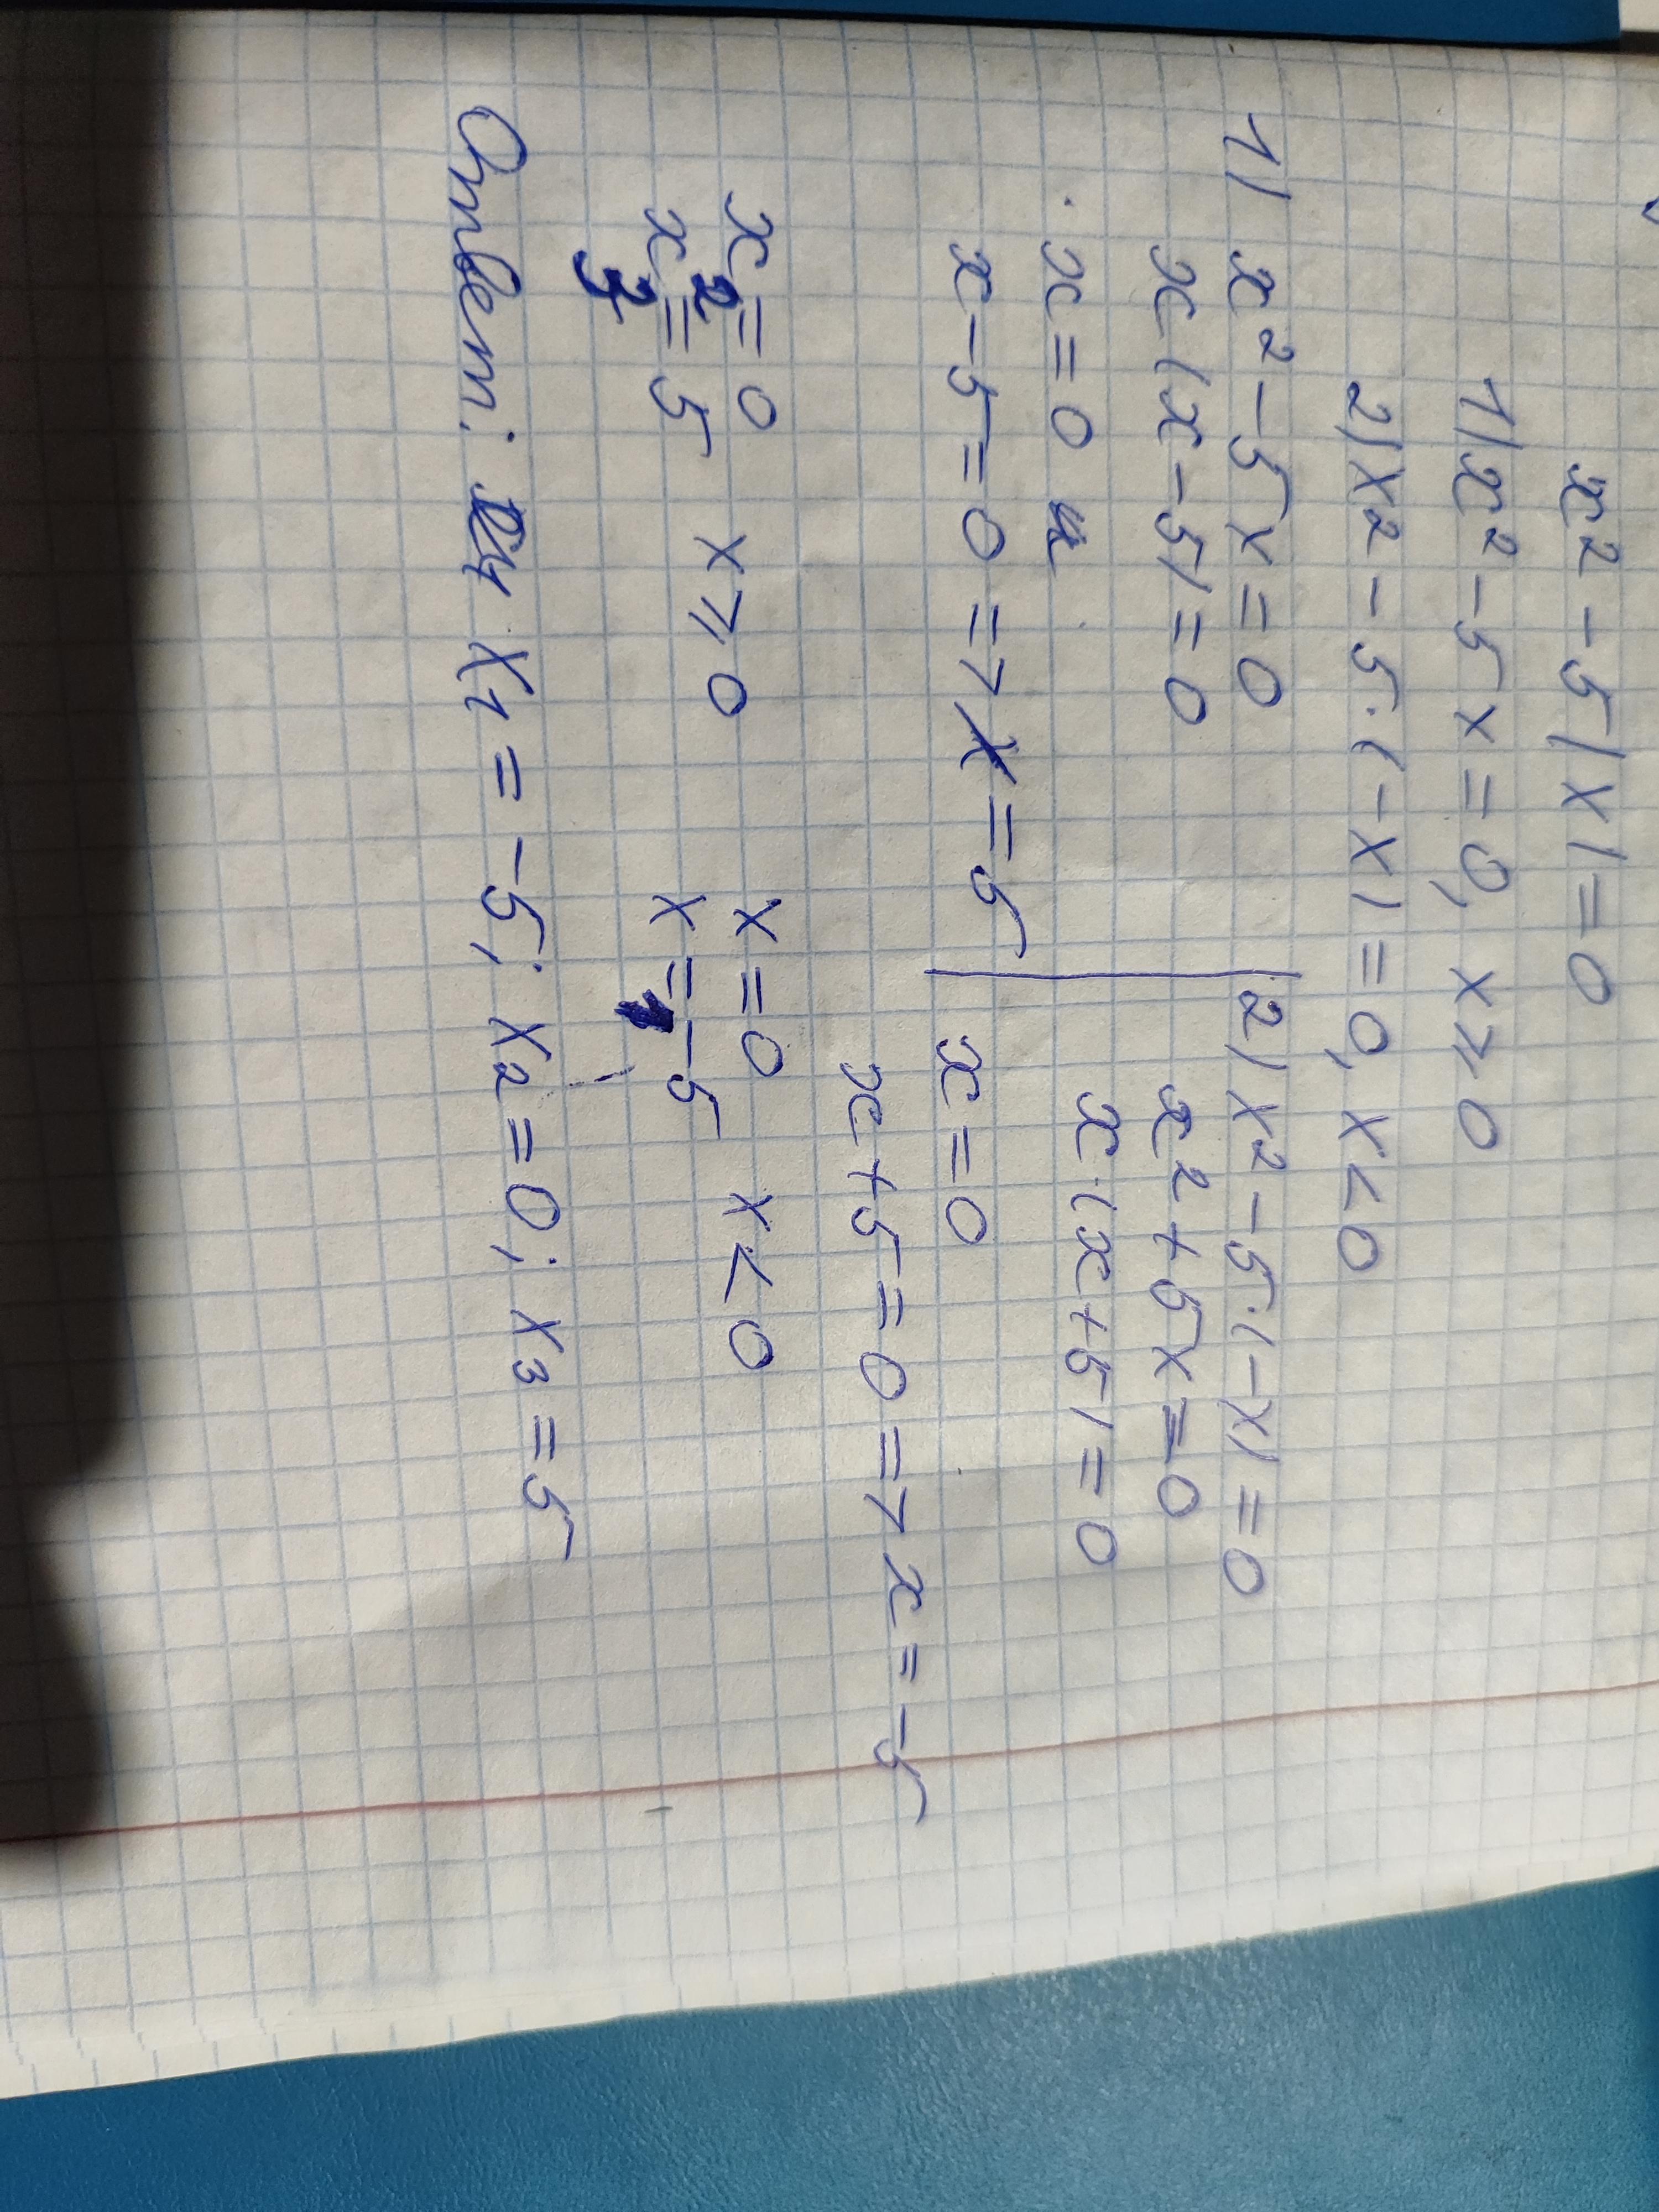 x² - 5|x| = 0
1) x² - 5x = 0, x ⩾ 0
2) x² - 5·(-x) = 0, x < 0
1) x² - 5x = 0
x(x - 5) = 0
x = 0 и
x - 5 = 0 => x = 5
2) x² - 5·(-x) = 0
x² + 5x = 0
x·(x + 5) = 0
x = 0
x + 5 = 0 => x = -5
x₂ = 0 x ⩾ 0
x₃ = 5
x = 0 x < 0
x₁ = -5
Ответ: x₁ = -5; x₂ = 0; x₃ = 5